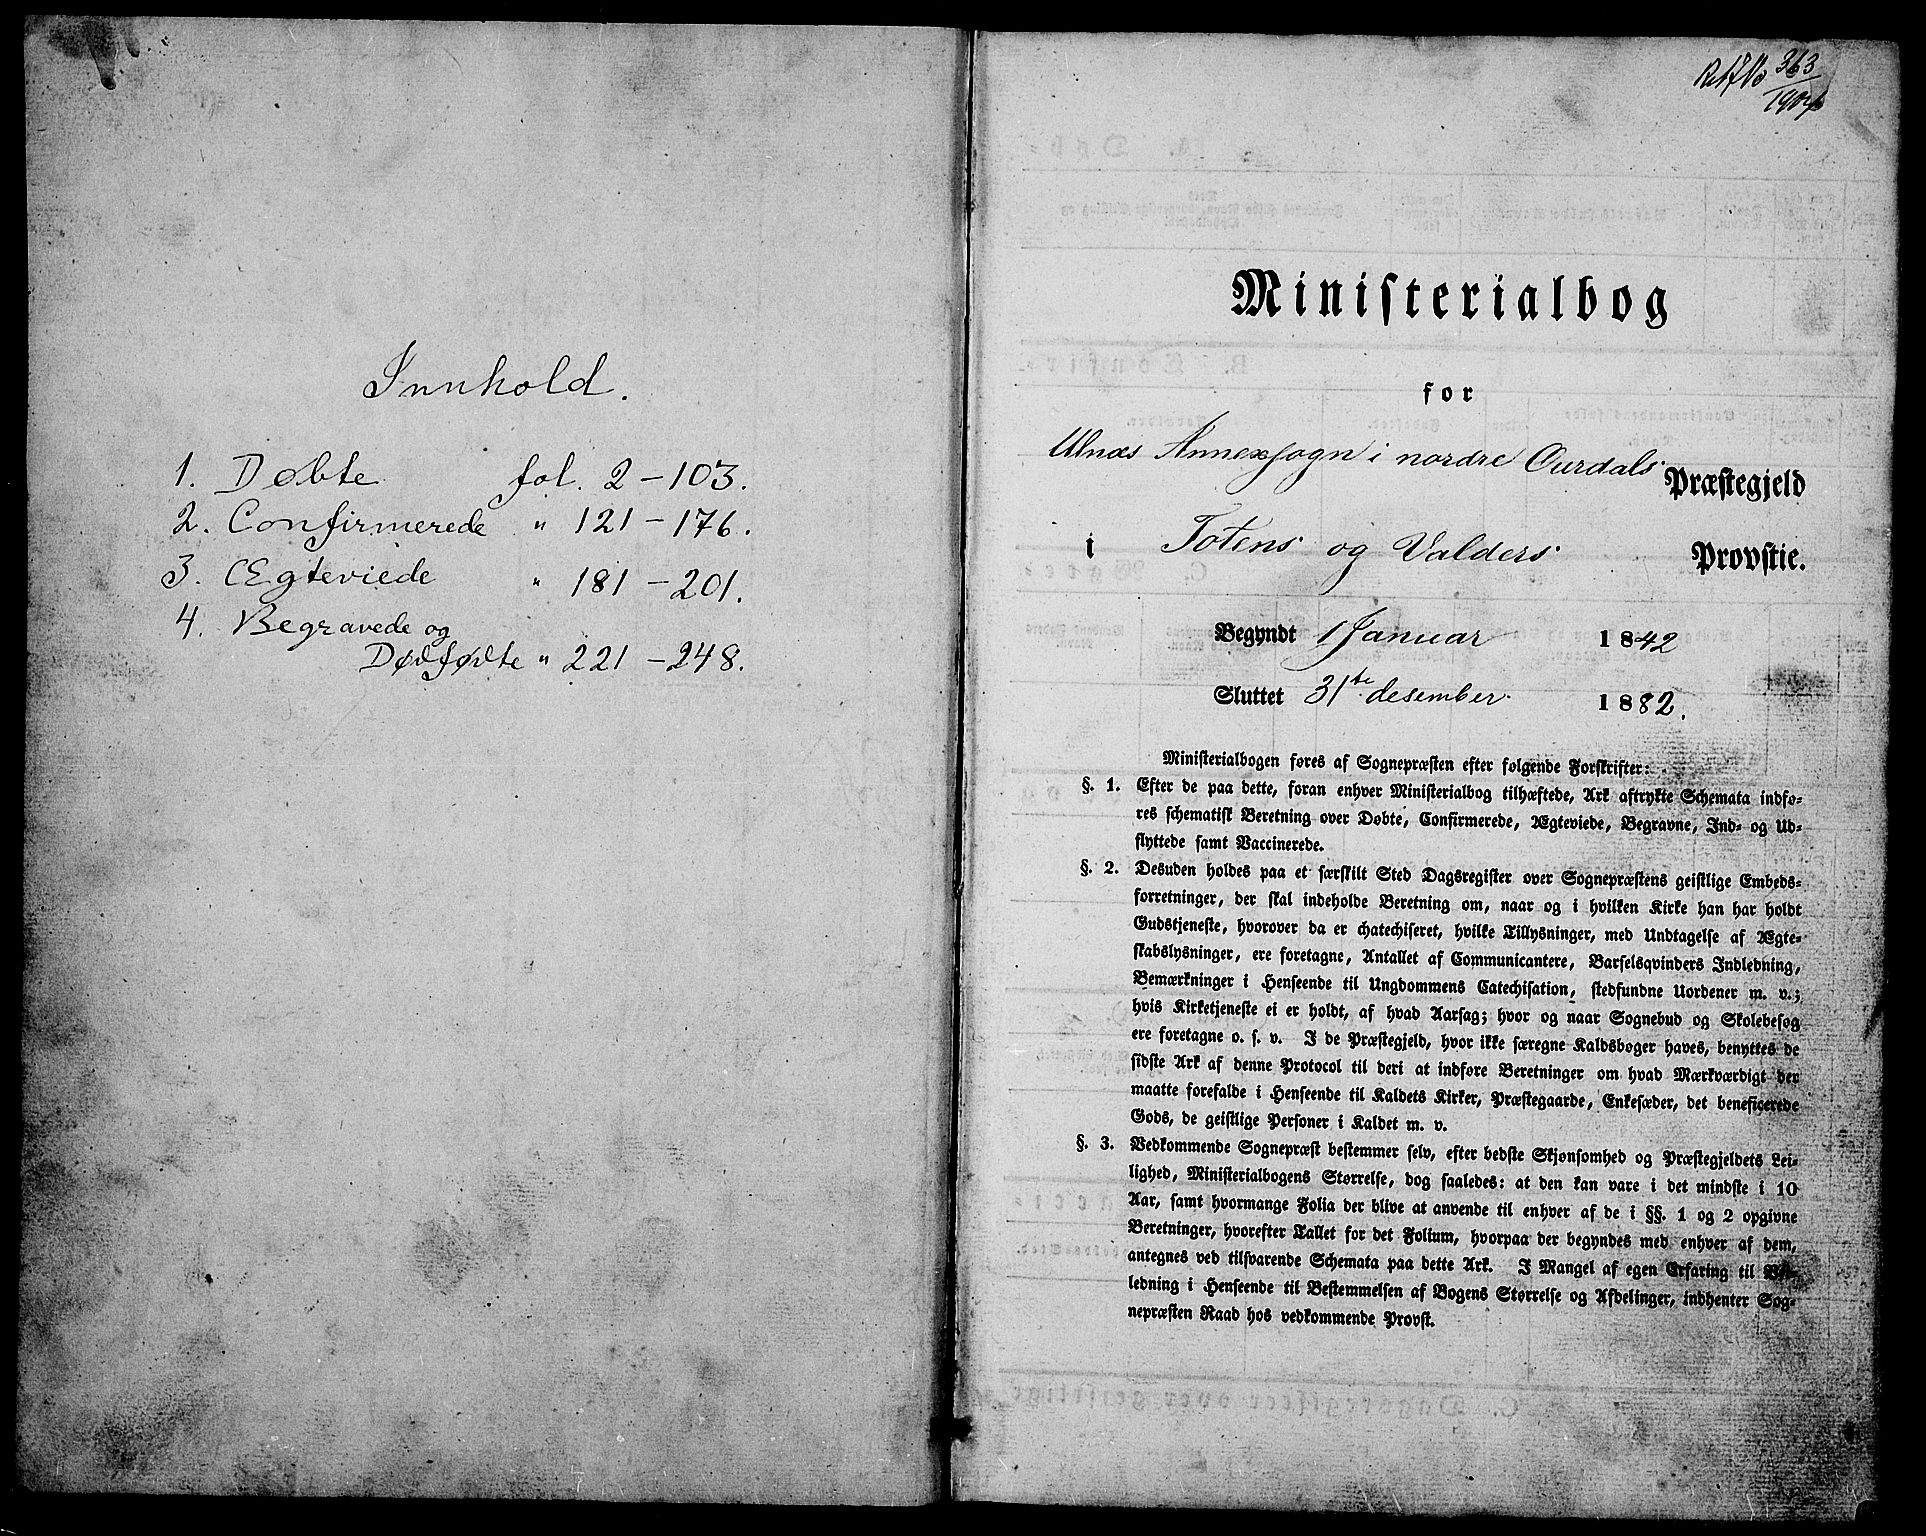 Innhold.
1. Døbte fol. 2 – 103.
2. Confirmerede " 121 – 176.
3. Ægteviede " 181 – 201.
4. Begravede og
Dødfødte " 221 – 248.
363
Ministerialbog
for
Ulnæs Annexsogn i nordre Ourdals Præstegjeld
i Totens og Valders Provstie.
Begyndt 1 Januar 1842
Sluttet 31te desember 1882.
Ministerialbogen føres af Sognepræsten efter følgende Forskrifter:
§. 1. Efter de paa dette, foran enhver Ministerialbog tilhæftede, Ark aftrykte Schemata indfø-
res schematisk Beretning over Døbte, Confirmerede, Ægteviede, Begravne, Ind- og Ud-
flyttede samt Vaccinerede.
§. 2. Desuden holdes paa et særskilt Sted Dagsregister over Sognepræstens geistlige Embeds-
forretninger, der skal indeholde Beretning om, naar og i hvilken Kirke han har holdt
Gudstjeneste, hvorover da er chatechiseret, hvilke Tillysninger, med Undtagelse af Ægte-
skabslysninger, ere foretagne, Antallet af Communicantere, Barselqvinders Indledning,
Bemærkninger i Henseende til Ungdommens Catechisation, stedfundne Uordener m. v.;
hvis Kirketjeneste ei er holdt, af hvad Aarsag; hvor og naar Sognebud og Skolebesøg
ere foretagne o. s. v. I de Præstegjeld, hvor ikke særegne Kaldsbøger haves, benyttes de
sidste Ark af denne Protocol til deri at indføre Beretninger om hvad Mærkværdigt der
maatte forefalde i Henseende til Kaldets Kirker, Præstegaarde, Enkesæder, det beneficerede
Gods, de geistlige Personer i Kaldet m. v.
§. 3. Vedkommende Sognepræst bestemmer selv, efter bedste Skjønsomhed og Præstegjeldets Lei-
lighed, Ministerialbogens Størrelse, dog saaledes: at den kan vare i det mindste i 10
Aar, samt hvormange Folia der blive at anvende til enhver af de i §§. 1 og 2 opgivne
Beretninger, hvorefter Tallet for det Folium, hvorpaa der begyndes med enhver af dem,
antegnes ved tilsvarende Schemata paa dette Ark. I Mangel af egen Erfaring til Vei-
ledning i Henseende til Bestemmelsen af Bogens Størrelse og Afdelinger, indhenter Sog-
nepræsten Raad hos vedkommende Provst.